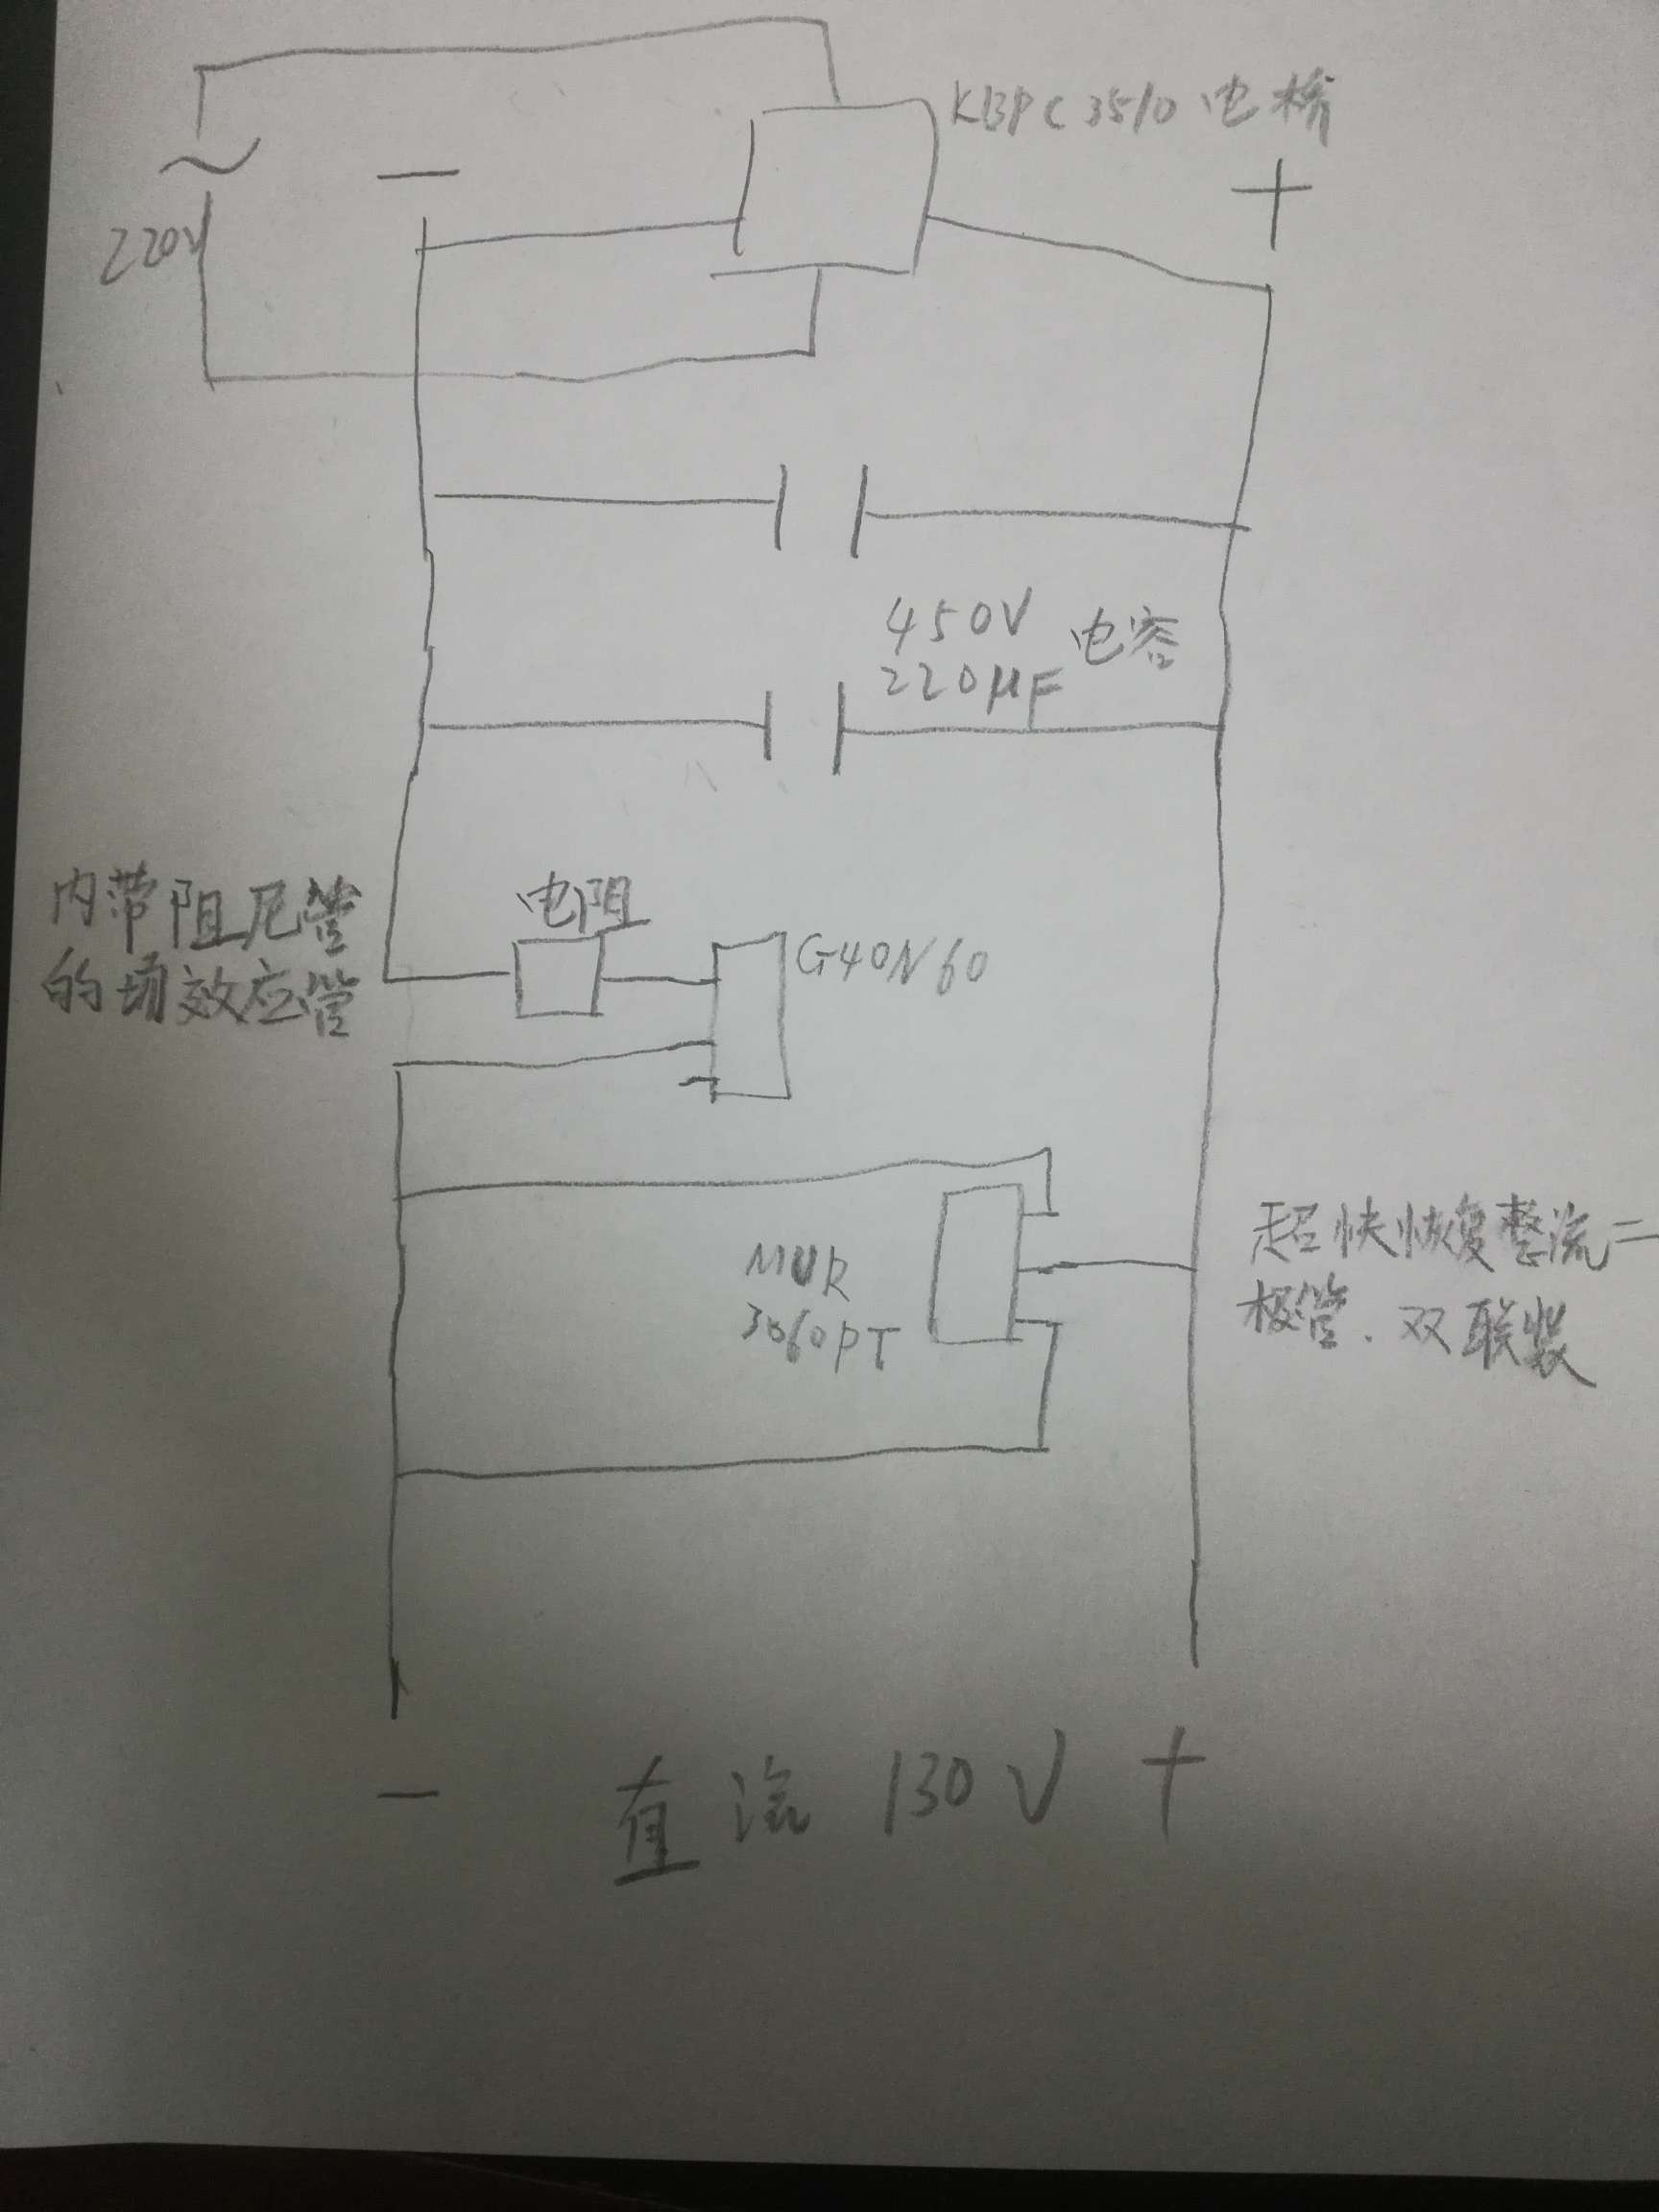 KBPC3510 电桥
~
220V
－
＋
450V
220μF
电容
内带阻尼管
的场效应管
电阻
G40N60
MUR
3060PT
超快恢复整流二
极管.双联装
－ 直流 130V ＋